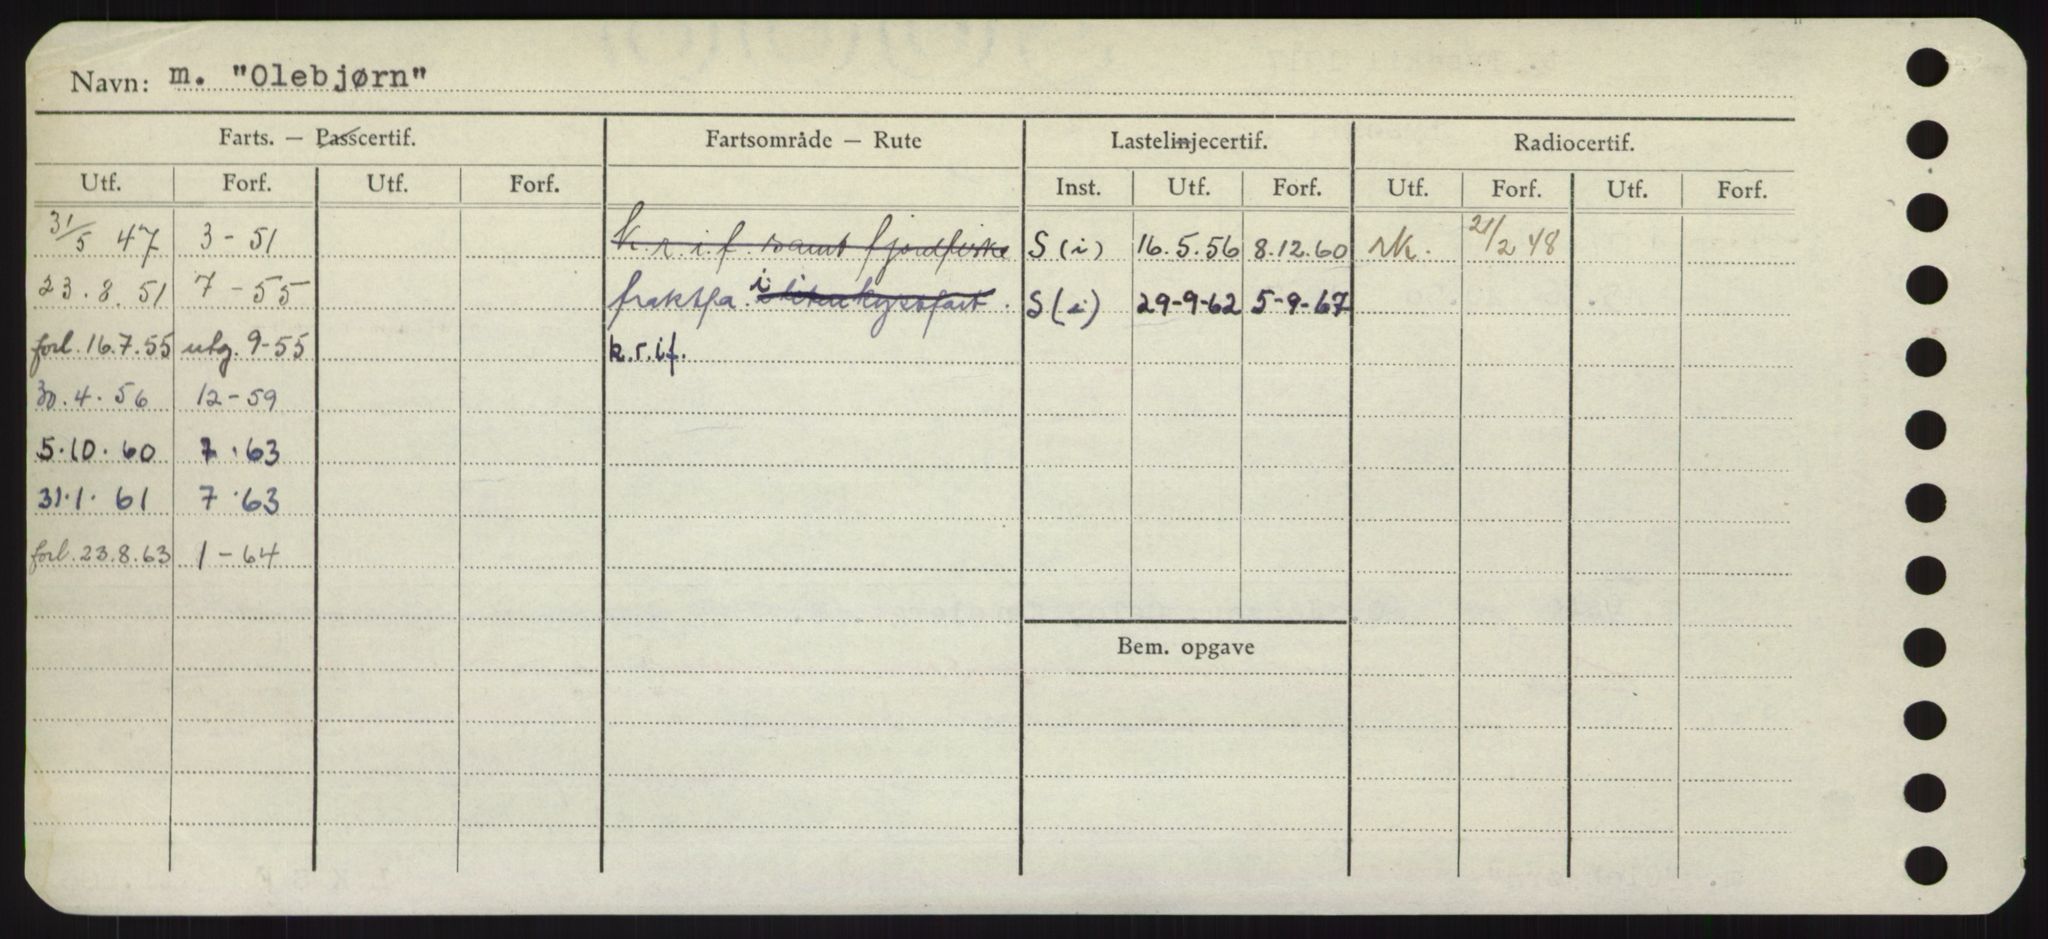 Navn: m. "Olebjørn"
Farts. — Passcertif. Fartsområde — Rute Lastelinjecertif. Radiocertif.
Utf. Forf. Utf. Forf. Inst. Utf. Forf. Utf. Forf. Utf. Forf.
31/5 47 3 - 51 k.r.i.f. samt fjordfiske S (i) 16.5.56 8.12.60 rk. 21/2 48
23.8.51 7 - 55 fraktfa. i liten kystfart. S (i) 29-9-62 5-9-67
forl. 16.7.55 utg. 9-55 k.r.i.f.
30.4.56 12-59
5.10.60 7.63
31.1.61 7.63
forl. 23.8.63 1-64
Bem. opgave